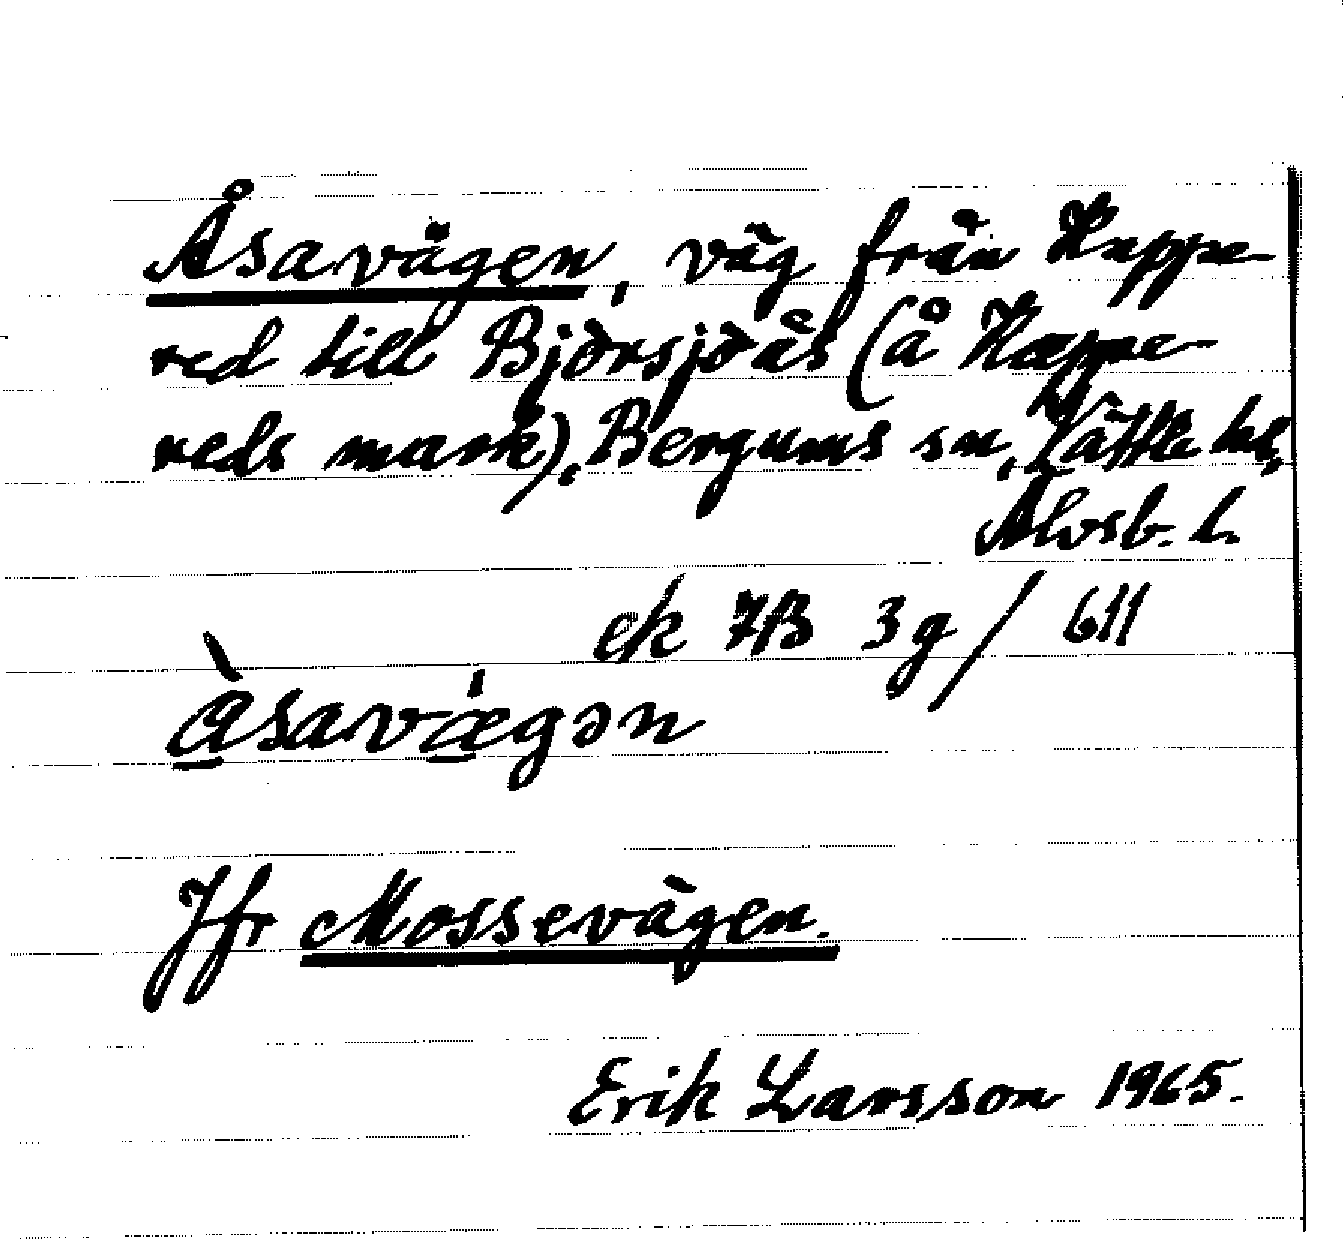 Åsavägen, väg från Happe-
red till Björsjöås (å Happe-
reds mark), Bergums sn, Vättle hd,
Älvsb. l.
ek 7B 3g / 611
åsavægən
Jfr Mossevägen.
Erik Larsson 1965.